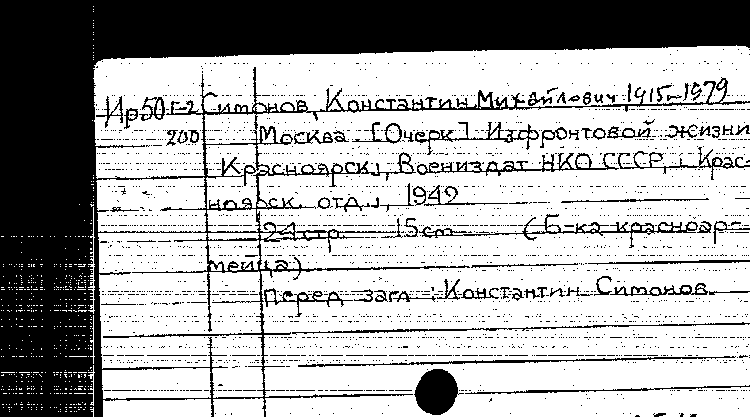 Ир50г-2 Симонов, Константин Михайлович 1915-1979
200 Москва. [Очерк.] Из фронтовой жизни
[Красноярск], Воениздат НКО СССР, [Крас-
ноярск. отд.], 1942
24 стр. 15 cm (Б-ка красноар-
мейца)
Перед загл.: Константин Симонов.